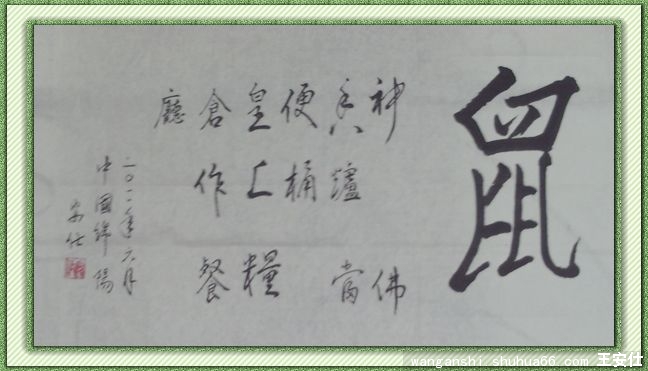 鼠
神佛
香爐當
便桶
皇上糧
倉作餐
廳
二〇一一年六月
中國綿陽
安仕
wanganshi.shuhua66.com 王安仕